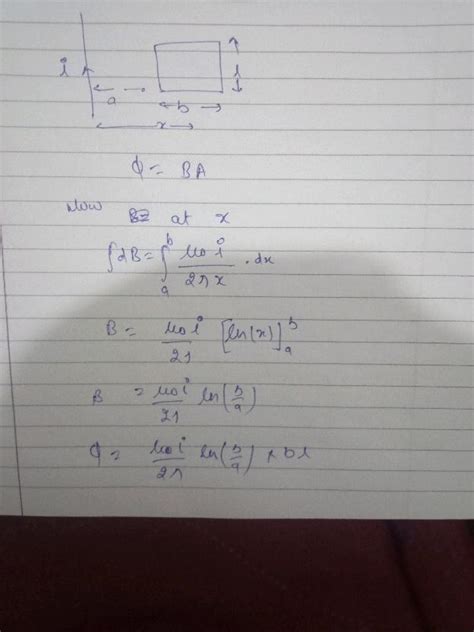 i
a
b
l
x
ϕ = BA
Now at x
∫dB = ∫ₐᵇ μ₀i/2πx . dx
B = μ₀i/2π [ln(x)]ₐᵇ
B = μ₀i/2π ln(b/a)
ϕ = μ₀i/2π ln(b/a) × bl